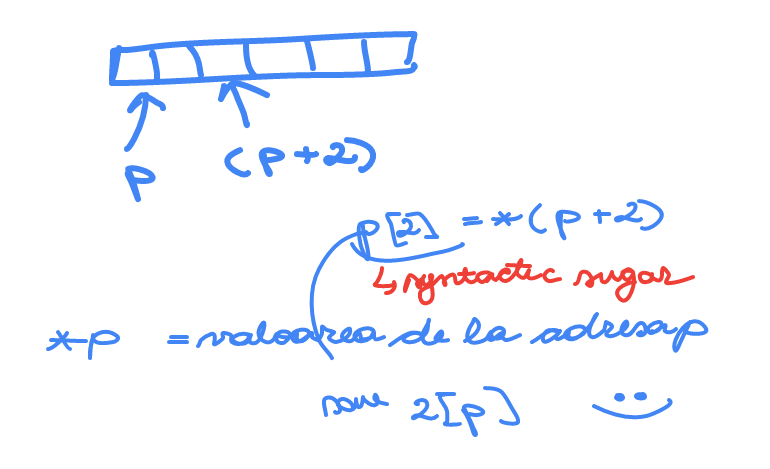 p (p+2)
p[2] = *(p+2)
↳ syntactic sugar
*p = valoarea de la adresa p
sau 2[p]